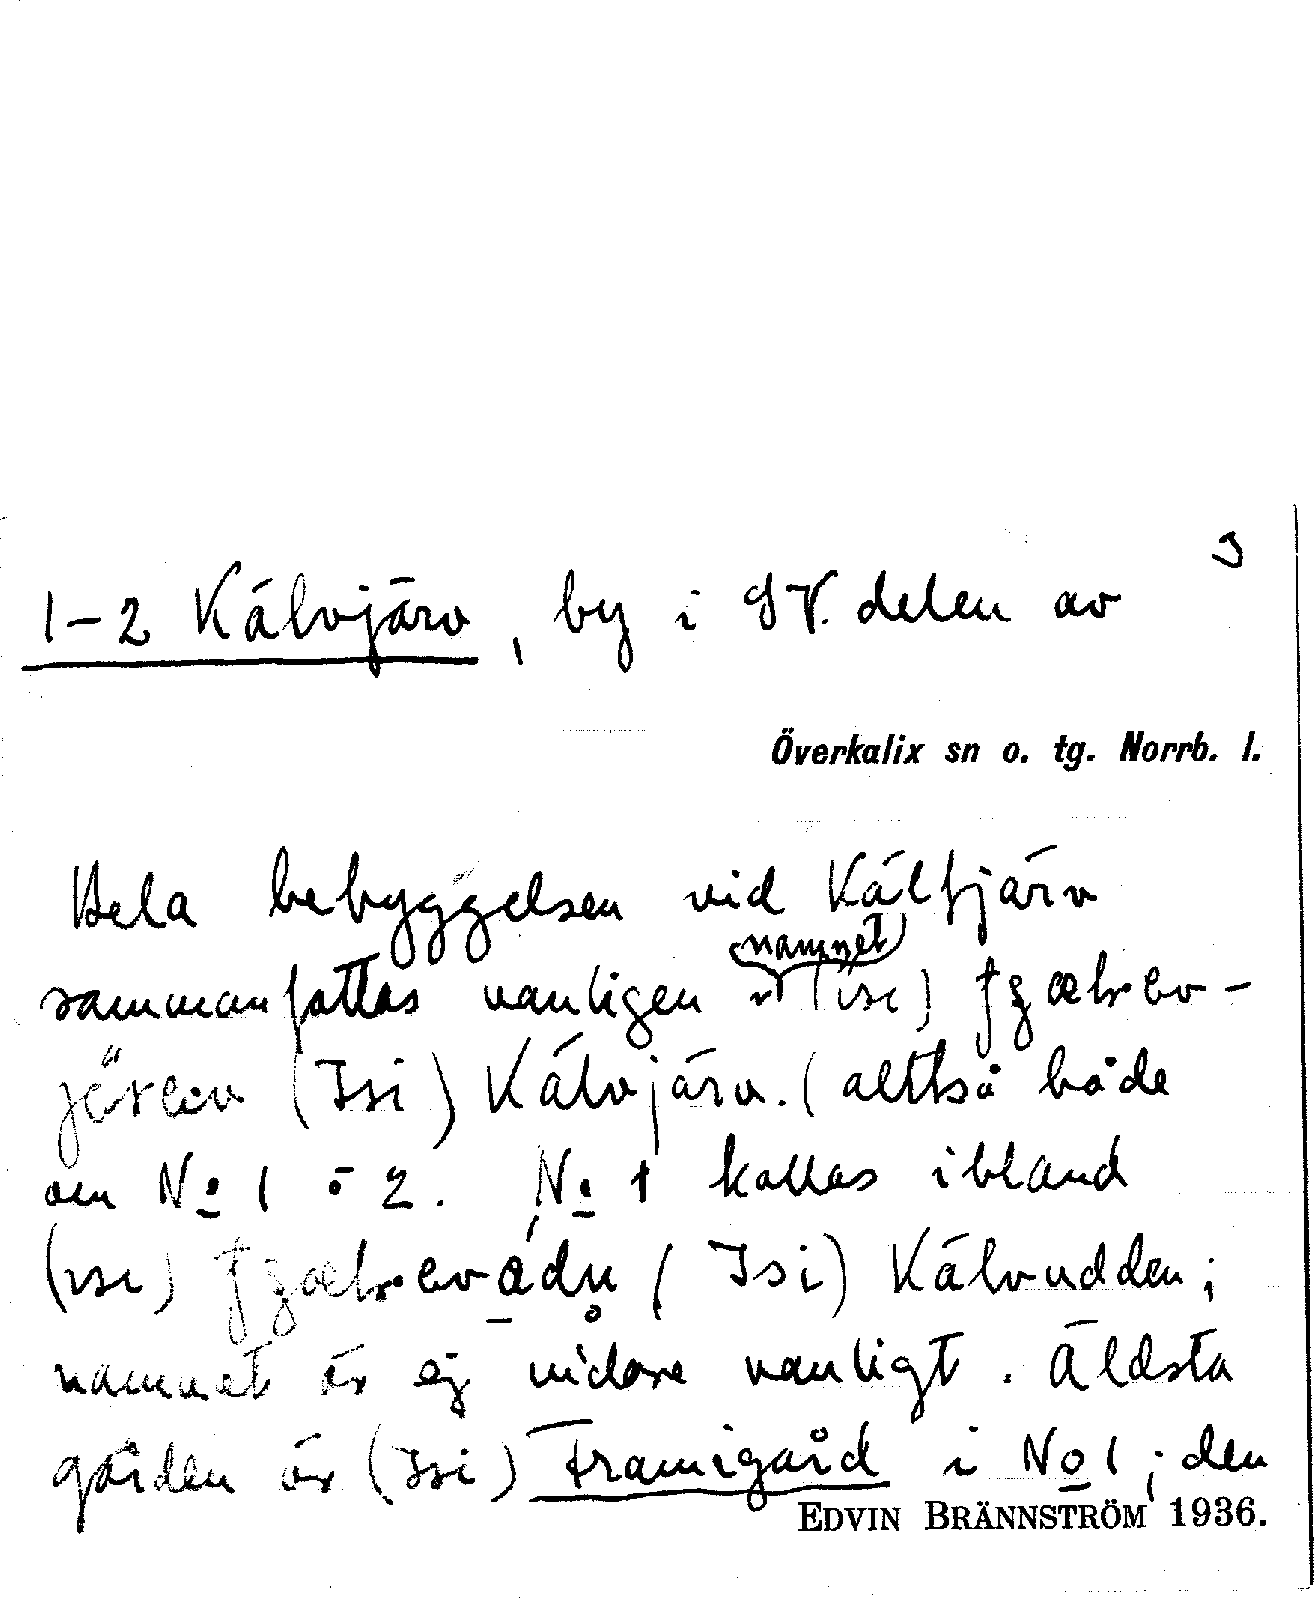 1-2 Kälvjärv, by i SV. delen av
Överkalix sn o. tg. Norrb. l.
Hela bebyggelsen vid Kälfjärv
namnet
sammanfattas vanligen (isi)
(Isi) Kälvjärv. (alltså både
om No 1 o 2. No 1 kallas ibland
(isi) (Isi) Kälvudden;
namnet är ej vidare vanligt. Äldsta
gården är (Isi) Framigård i No 1; den
EDVIN BRÄNNSTRÖM 1936.